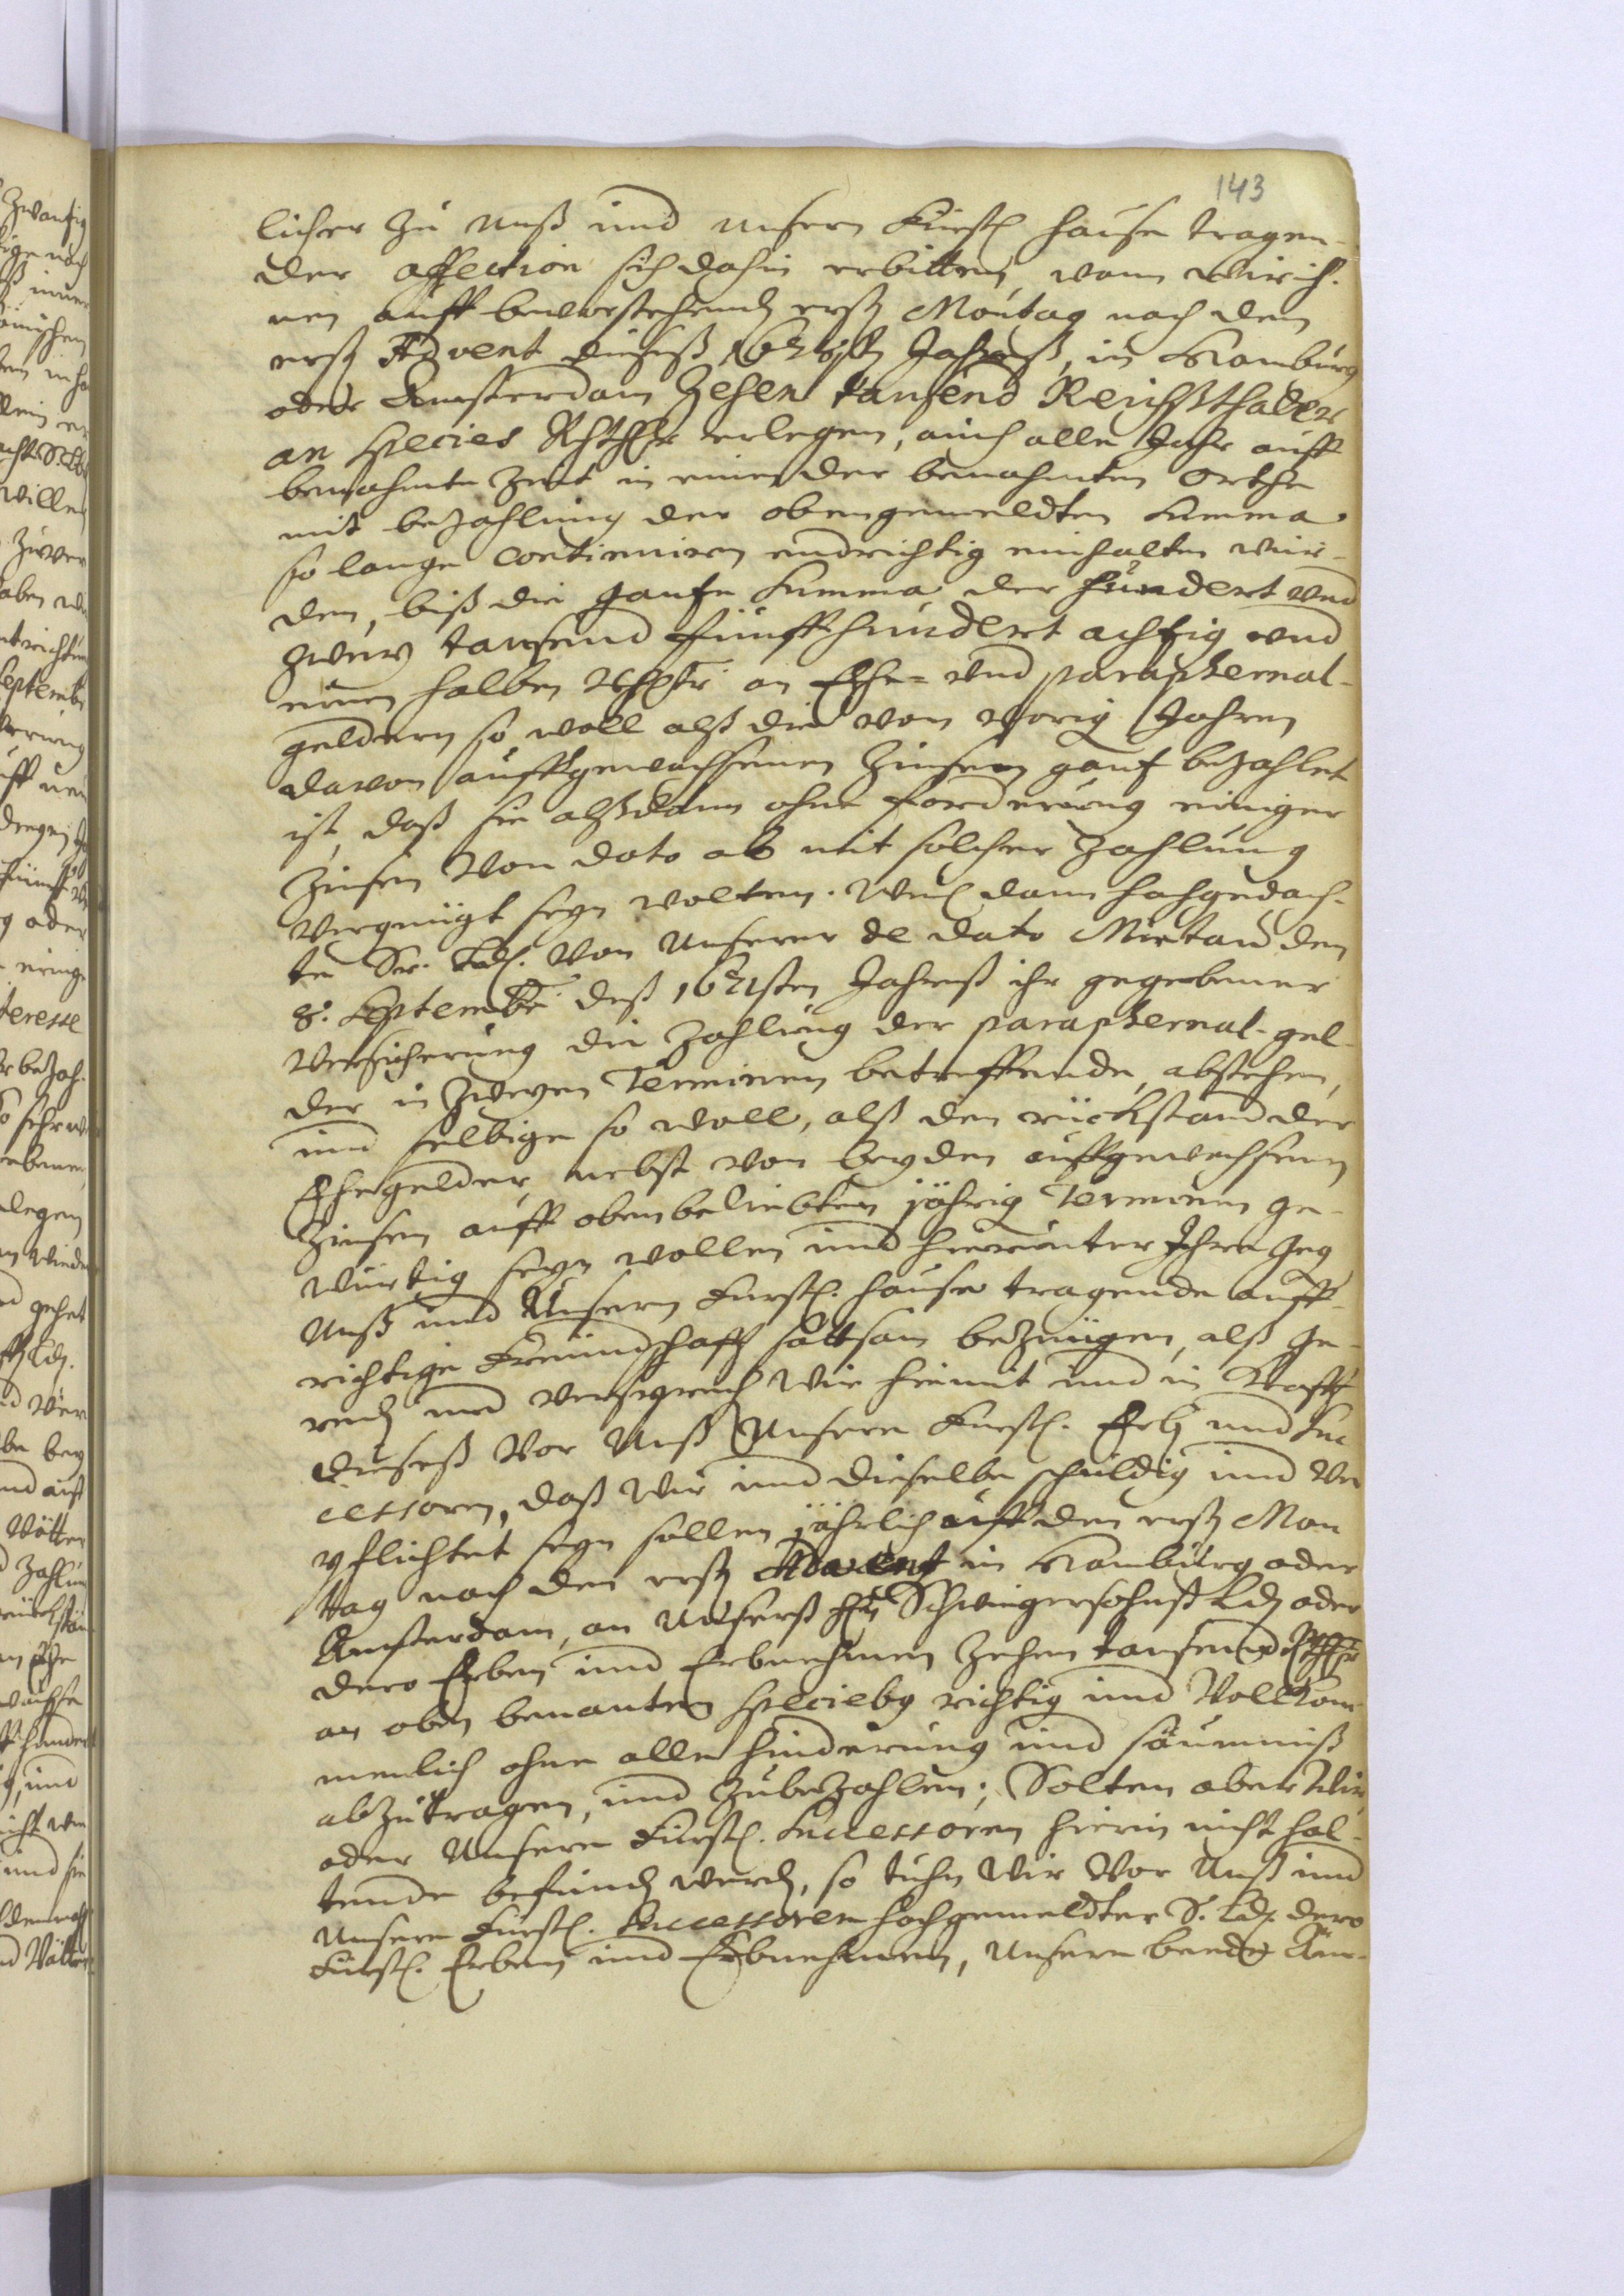 143
licher zu unß und unsern Fürstl hause tragen-
der affection sich dahin erbitten, wann wir ih-
nen auff bevorstehend erst Montag nach dem
erst Advent dieseß Jahreß, in Hamburg
oder Amsterdam Zehen tausend Reichßthaler
an species Rthlr erlegen, auch alle Jahr auff
benahmte Zeit in einen der benahmten Orthe
mit bezahlung der obengemeldten Summa
so lange continuiren undrichtig einhalten wür-
den, biß die gantze Summa der hundert und
zwey tausend fünffhundert achtzig und
einen halben Rthlr an Ehe- und paraphernal-
geldern so woll alß die von vorig Jahren
davon auffgewachsenen Zinsen gantz bezahlet
ist, daß sie alßdann ohne forderung einiger
Zinsen von dato ab mit solcher Zahlung
vergnügt seyn wolten. Weil dann hochgedach-
te Sr. Ld. von Unserer de dato Mietau den
8. Septembr. deß 1671sten Jahreß ihr gegebener
Versicherung die Zahlung der paraphernal-gel-
der in zweyen Terminen betreffende, abstehen,
und selbige so woll, alß den rückstand der
Ehegelder, nebst von beyden auffgewachsenen
Zinsen auff obenbeliebten jährig Terminen ge-
würtig seyn wollen und hierunter Ihre geg
Unß und Unserm Furstl. hause tragende auff-
richtige Freundschafft sattsam bezeugen, alß ge-
reden und versprech wir hiemit und in Krafft
dieseß vor Unß Unsere Furstl. Erb und Suc
cessoren, daß wir und dieselbe schuldig und ver
pflichtet seyn sollen jährlich auff den erst Mon
tag nach den erst Advent in Hamburg oder
Amsterdam, an Unserß H. Schwiegersohnß Ld oder
dero Erben und Erbnehmen Zehen tausend Rthlr
an oben benanten richtig und Vollkom-
menlich ohne alle hinderung und säumniß
abzutragen, und zubezahlen; Solten aber Wir,
oder Unsere Fürstl. Successoren hierin nicht hal-
tende befund werd, so tuhn Wir Vor Unß und
Unsere Fürstl. Successoren hochgemeldter S. Ld. dero
Fürstl. Erben und Erbnehmen, Unsere beede Äm-